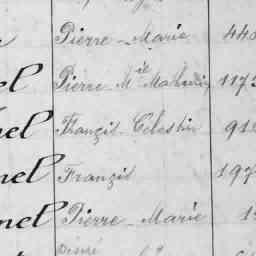 Pierre-Marie 440
el Pierre Mie Mathurin 1173
nel Françis-Célestin 91
nel Françis 197
nel Pierre-Marie 1
Désiré